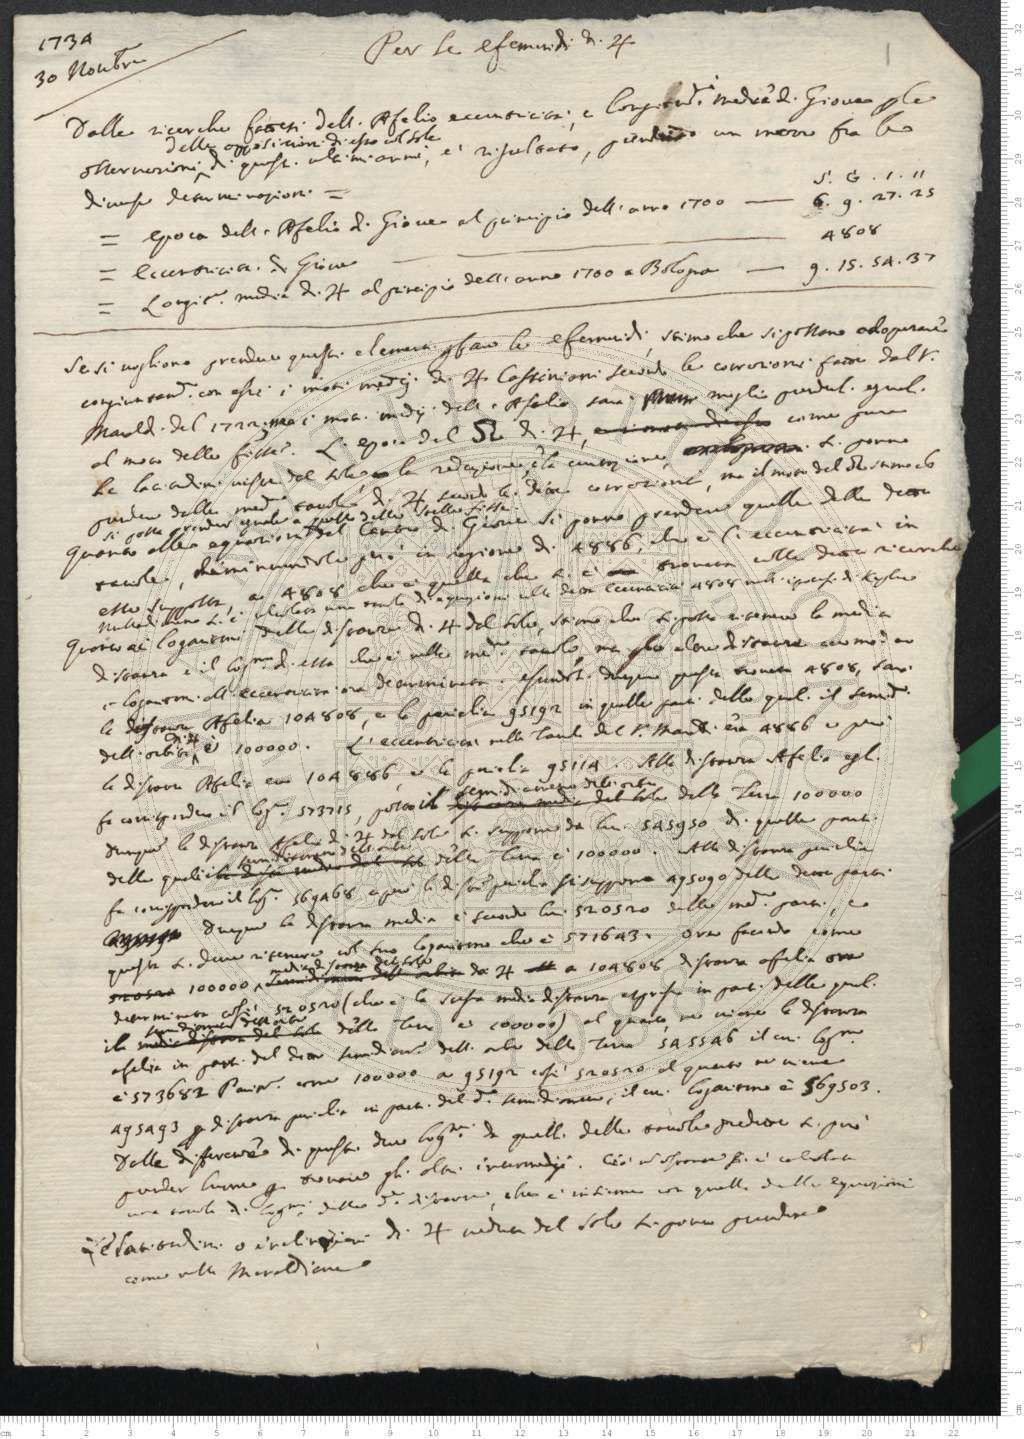 1734
30 Novbre
Per le efemeridi di ♃
1
Dalle ricerche fattesi dell' Afelio eccentricità, e longitudi. media di Giove p le
delle opposizioni di esso col Sole
osservazioni di questi ultimi anni, è risultato, prendendo un mezzo fra le
diverse determinazioni =
S. G. I. II
= epoca dell' Afelio di Giove al principio dell' anno 1700 — 6. 9. 27. 25
= eccentricità di Giove — 4808
= Longit. media di ♃ al principio dell' anno 1700 a Bologna — 9. 15. 54. 37
Se si vogliono prendere questi elementi p fare le efemeridi, stimo che si possano adoperare
congiuntam. con essi i moti medij di ♃ Cassiniani secondo le correzioni fatte dal S.
Maraldi del 1722, ma i moti medij dell' Afelio sarà meglio prenderli eguali
al moto delle fisse. L' epoca del ☊ di ♃, come pure
le latitudini viste dal Sole, e la reduzione, e la curtazione, si ponno
prender dalle med. tavole di ♃ secondo le dette correzioni, ma il moto del ☊ stimo che
si possa prender eguale a quello delle stelle fisse.
Quanto alle equazioni del Centro di Giove si ponno prendere quelle delle dette
tavole, diminuendole però in ragione di 4886, che è l' eccentricità in
esse supposta, a 4808 che è quella che si è trovata colle dette ricerche
Nulladimeno si è calcolata una tavola di equazioni colla detta eccentricità 4808 nell' ipotesi di Keplero
Quanto ai logaritmi delle distanze di ♃ dal Sole, stimo che si possa ritenere la media
distanza e il log. di essa che è nelle med. tavole, ma p le altre distanze accomodar
i logaritmi all' eccentricità ora determinata. essendo dunque questa 4808, sarà
la distanza Afelia 104808, e la perielia 95192 in quelle parti delle quali il semid.
dell' orbita di ♃ è 100000. L' eccentricità nelle Tavole del S. Maraldi era 4886 e però
la distanza Afelia era 104886, e la perielia 95114. Alla distanza Afelia egli
semidiametro dell' orbe
fa corrispondere il log. 573715, posto il della Terra 100000
dunque la distanza Afelia di ♃ dal Sole si suppone da lui 545950 di quelle parti
semidiametro dell' orbe
delle quali il della Terra è 100000. Alla distanza perielia
fa corrispondere il log. 569468 e però la dist. perielia si suppone 495090 delle dette parti
Dunque la distanza media è secondo lui 520520 delle med. parti, e
questa si deve ritenere col suo logaritmo che è 571643. Ora facendo come
media distanza dal Sole
100000 di ♃ a 104808 distanza afelia ora
determinata così 520520 (che è la stessa media distanza espressa in parti delle quali
semidiametro dell' orbe
il della Terra è 100000) al quarto, ne viene la distanza
afelia in parti del detto semidiam. dell' orbe della Terra 545546 il cui log.
è 573682 Parim. come 100000 a 95192 così 520520 al quarto ne viene
495493 p distanza perielia in parti del d. semidiametro, il cui logaritmo è 569503.
Dalle differenze di questi due log. da quelli delle tavole predette si può
prender lume p trovare gli altri intermedij. Ciò nonostante si è calcolata
una tavola di log. delle d. distanze, che è insieme con quella delle equazioni
Le latitudini o inclinazioni di ♃ vedute dal Sole si ponno prendere
come nelle Maraldiane